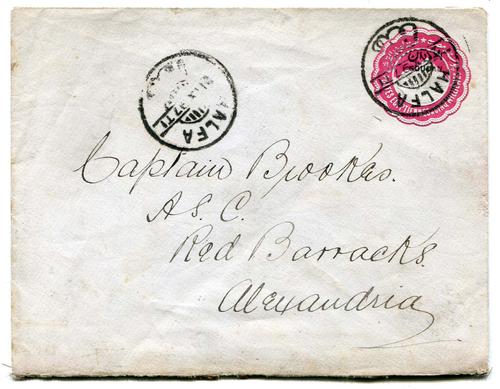 HALFA
HALFA
Captain Brookes.
A.S.C.
Red Barracks.
Alexandria